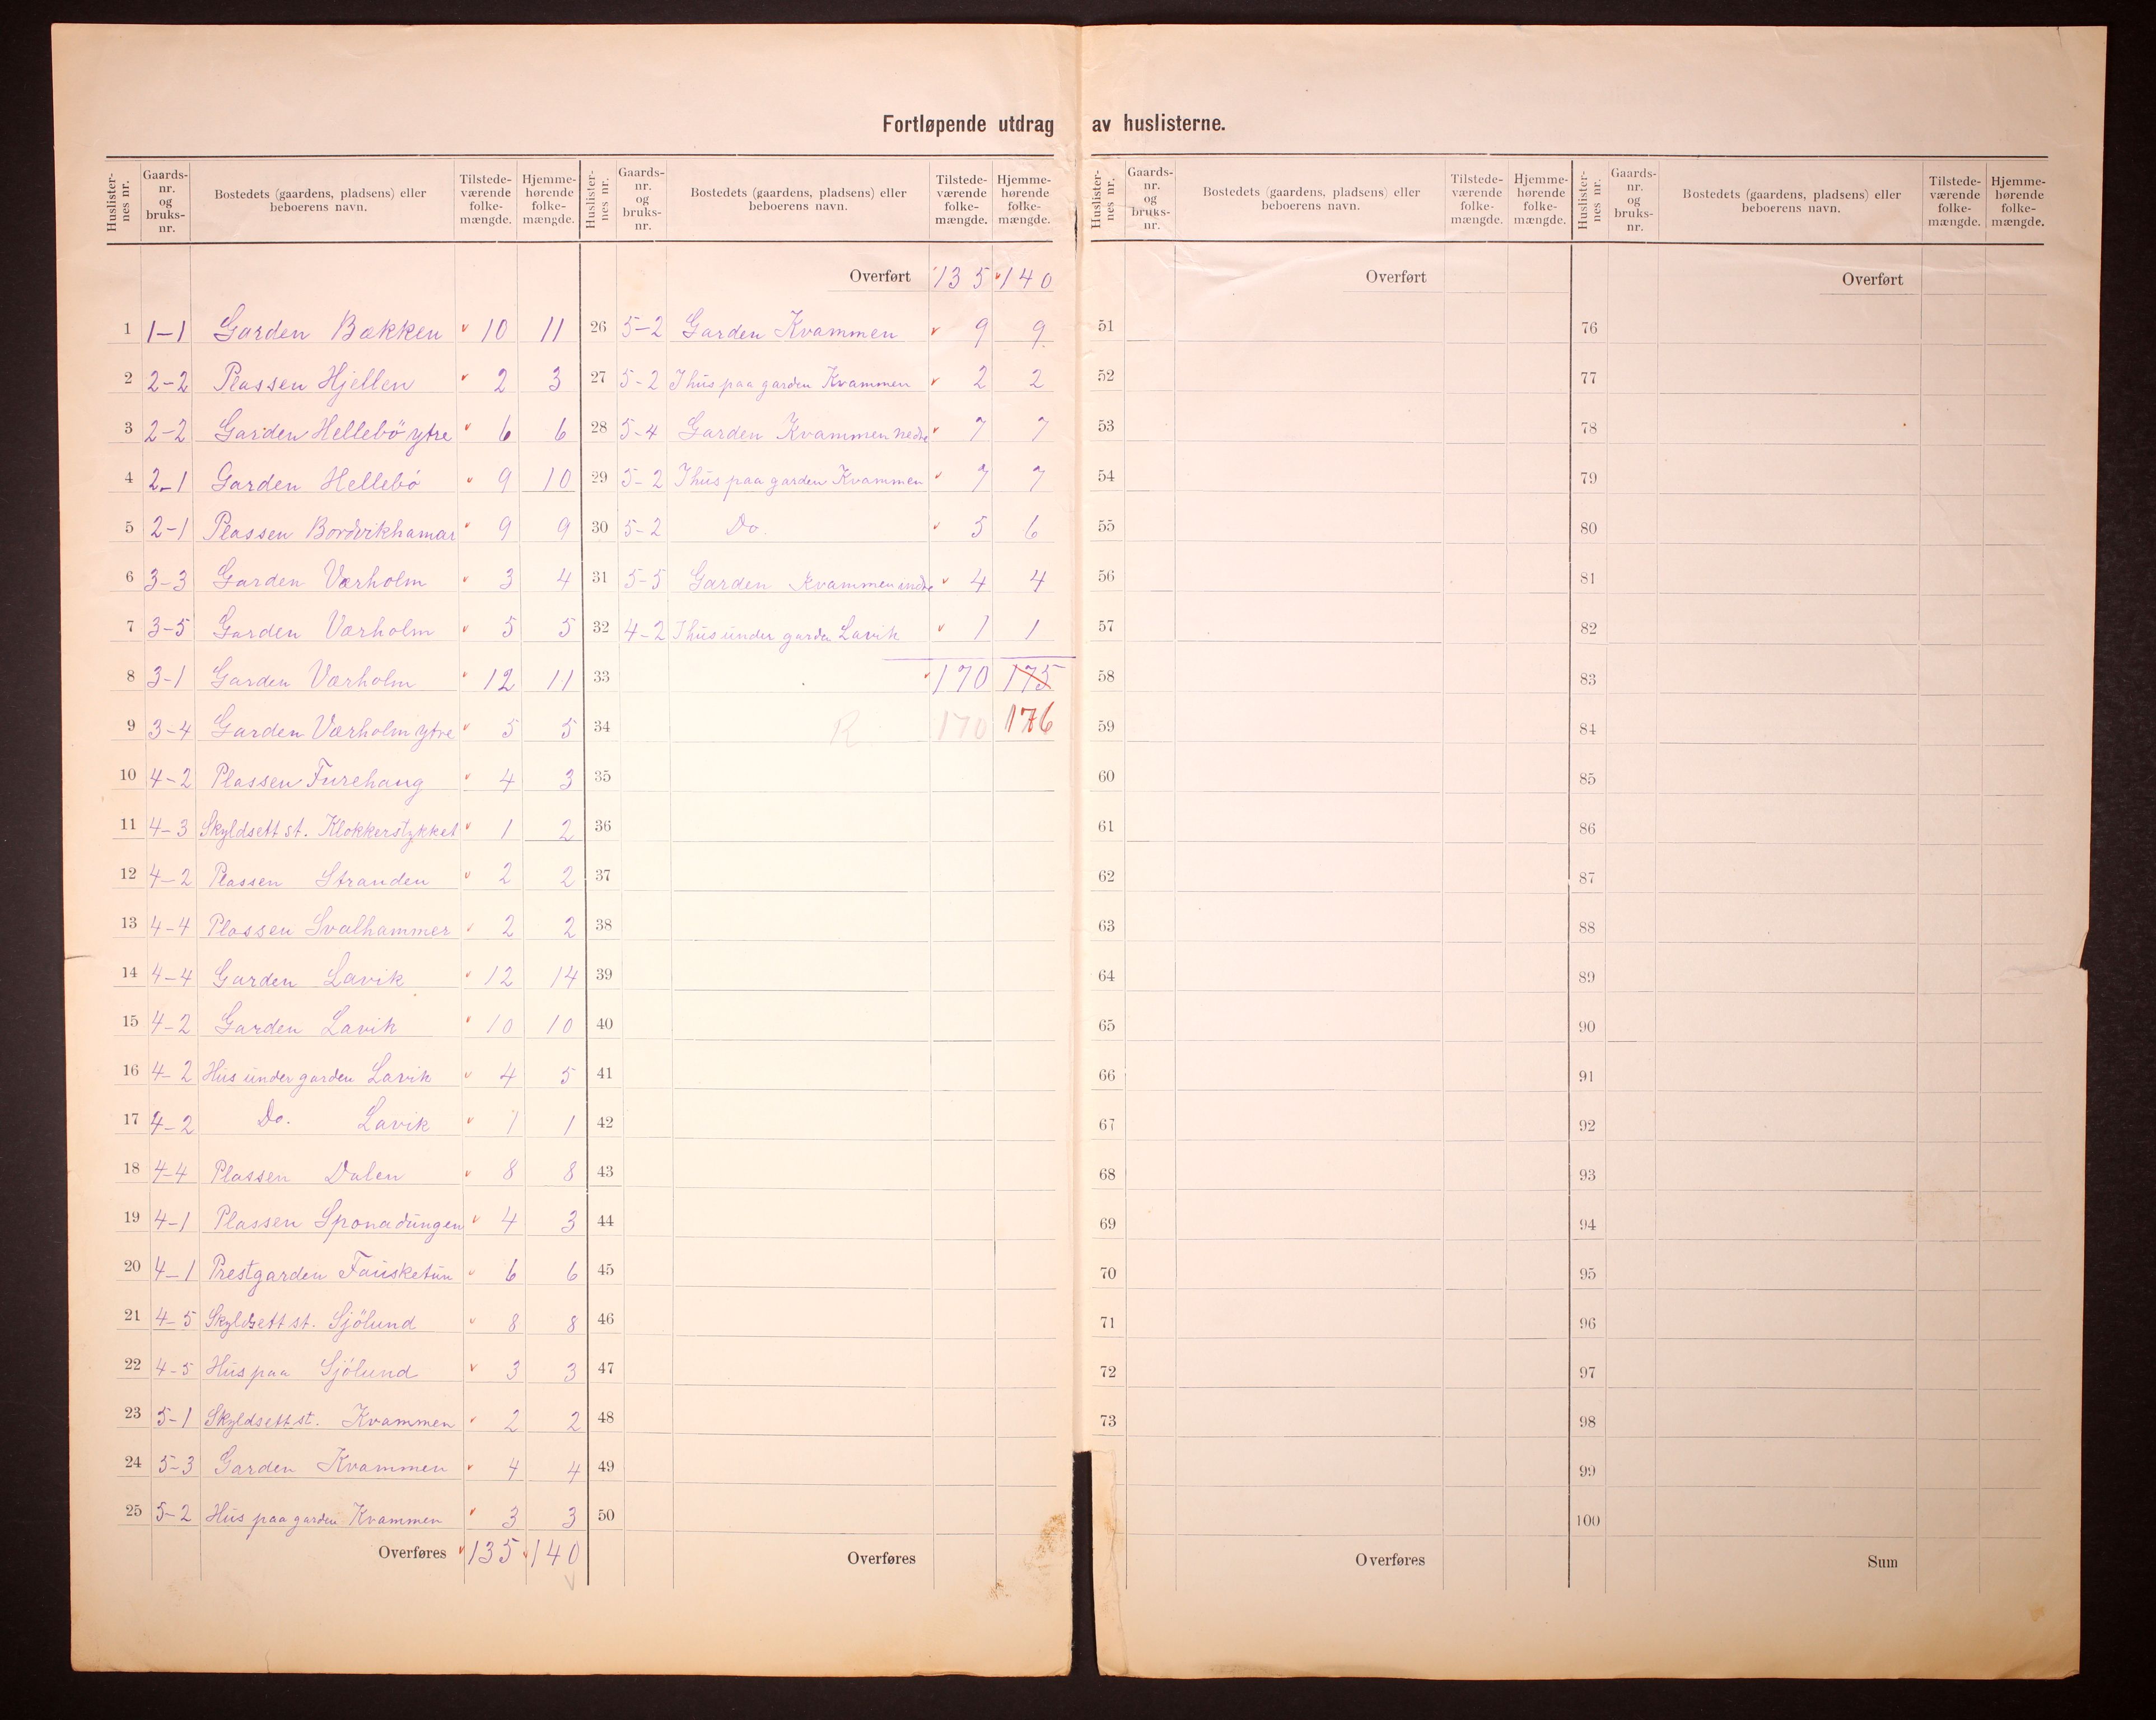 Fortløpende utdrag av huslisterne.
Huslister-nes nr. Gaards-nr. og bruks-nr. Bostedets (gaardens, pladsens) eller beboerens navn. Tilstede-værende folke-mængde. Hjemme-hørende folke-mængde.
1 1-1 Garden Bakken 10 11
2 2-2 Plassen Hjellen 2 3
3 2-2 Garden Hellebö ytre 6 6
4 2-1 Garden Hellebö 9 10
5 2-1 Plassen Bordvikhamar 9 9
6 3-3 Garden Værholm 3 4
7 3-5 Garden Værholm 5 5
8 3-1 Garden Værholm 12 11
9 3-4 Garden Værholm ytre 5 5
10 4-2 Plassen Furehaug 4 3
11 4-3 Skyldsett st. Klokkerstykket 1 2
12 4-2 Plassen Stranden 2 2
13 4-4 Plassen Svalhammer 2 2
14 4-4 Garden Lavik 12 14
15 4-2 Garden Lavik 10 10
16 4-2 Hus under garden Lavik 4 5
17 4-2 Do. Lavik 1 1
18 4-4 Plassen Dalen 8 8
19 4-1 Plassen Sponadungen 4 3
20 4-1 Prestgarden Fausketun 6 6
21 4-5 Skyldsett st. Sjölund 8 8
22 4-5 Hus paa Sjölund 3 3
23 5-1 Skyldsett st. Kvammen 2 2
24 5-3 Garden Kvammen 4 4
25 5-2 Hus paa garden Kvammen 3 3
Overføres 135 140
Huslister-nes nr. Gaards-nr. og bruks-nr. Bostedets (gaardens, pladsens) eller beboerens navn. Tilstede-værende folke-mængde. Hjemme-hørende folke-mængde.
Overført 135 140
26 5-2 Garden Kvammen 9 9
27 5-2 I hus paa garden Kvammen 2 2
28 5-4 Garden Kvammen nedre 7 7
29 5-2 I hus paa garden Kvammen 7 7
30 5-2 Do. 5 6
31 5-5 Garden Kvammen indre 4 4
32 4-2 I hus under garden Lavik 1 1
33 170 175
34 R. 170 176
35
36
37
38
39
40
41
42
43
44
45
46
47
48
49
50
Overføres
Huslister-nes nr. Gaards-nr. og bruks-nr. Bostedets (gaardens, pladsens) eller beboerens navn. Tilstede-værende folke-mængde. Hjemme-hørende folke-mængde.
Overført
51
52
53
54
55
56
57
58
59
60
61
62
63
64
65
66
67
68
69
70
71
72
73
Overføres
Huslister-nes nr. Gaards-nr. og bruks-nr. Bostedets (gaardens, pladsens) eller beboerens navn. Tilstede-værende folke-mængde. Hjemme-hørende folke-mængde.
Overført
76
77
78
79
80
81
82
83
84
85
86
87
88
89
90
91
92
93
94
95
96
97
98
99
100
Sum